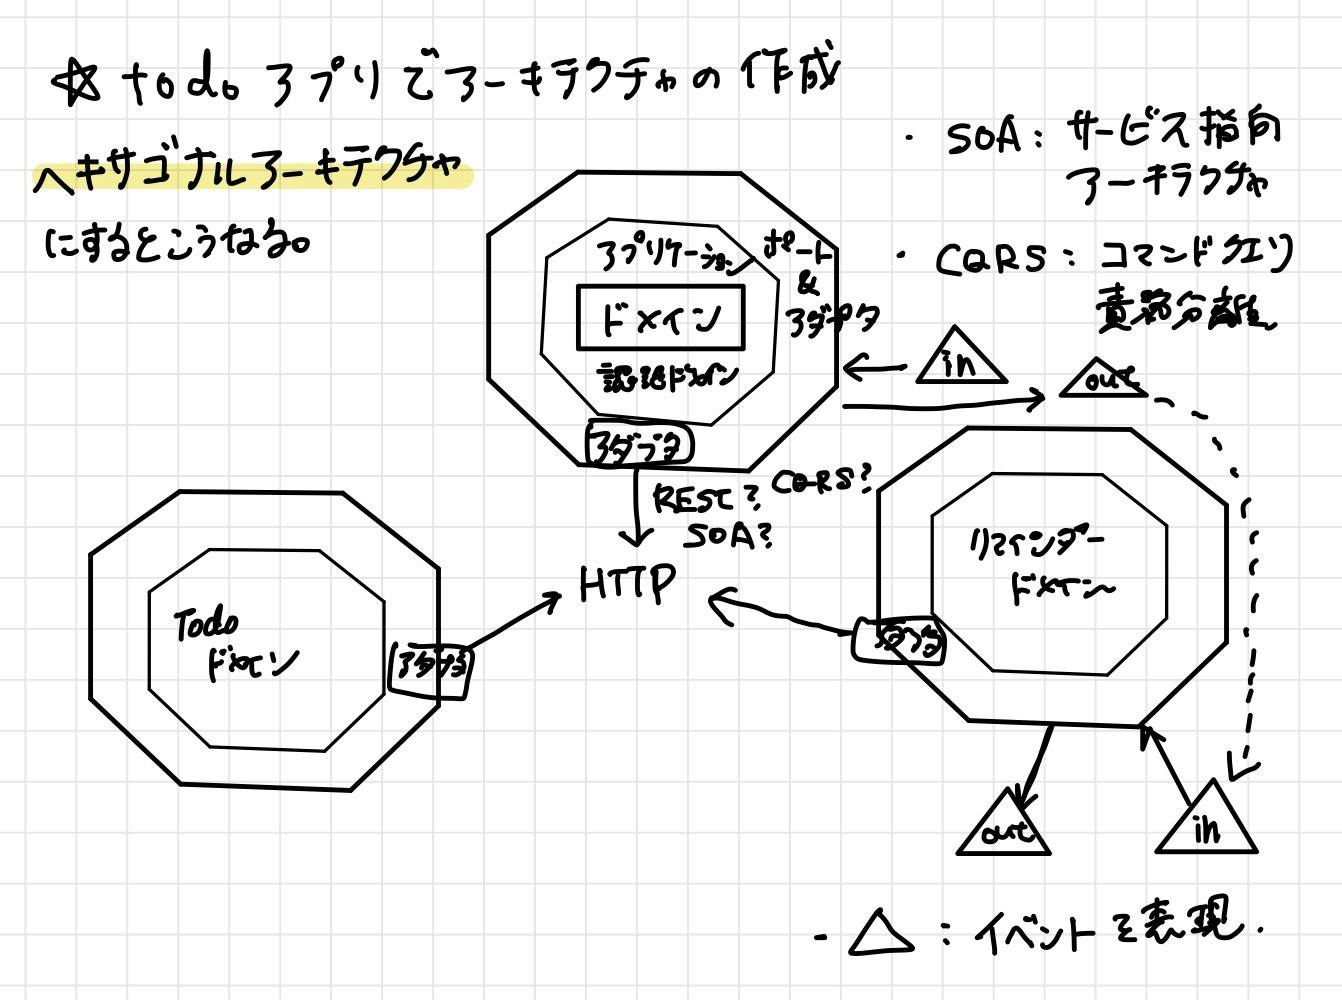 ☆ todo アプリでアーキテクチャの作成
ヘキサゴナルアーキテクチャ
にするとこうなる。
・SOA: サービス指向
アーキテクチャ
・CQRS: コマンドクエリ
責務分離
アプリケーション
ポート
&
アダプタ
ドメイン
認証ドメイン
アダプタ
in
out
REST?
CQRS?
SOA?
HTTP
Todo
ドメイン
アダプタ
リマインダー
ドメイン
アダプタ
out
in
・△: イベントを表現.